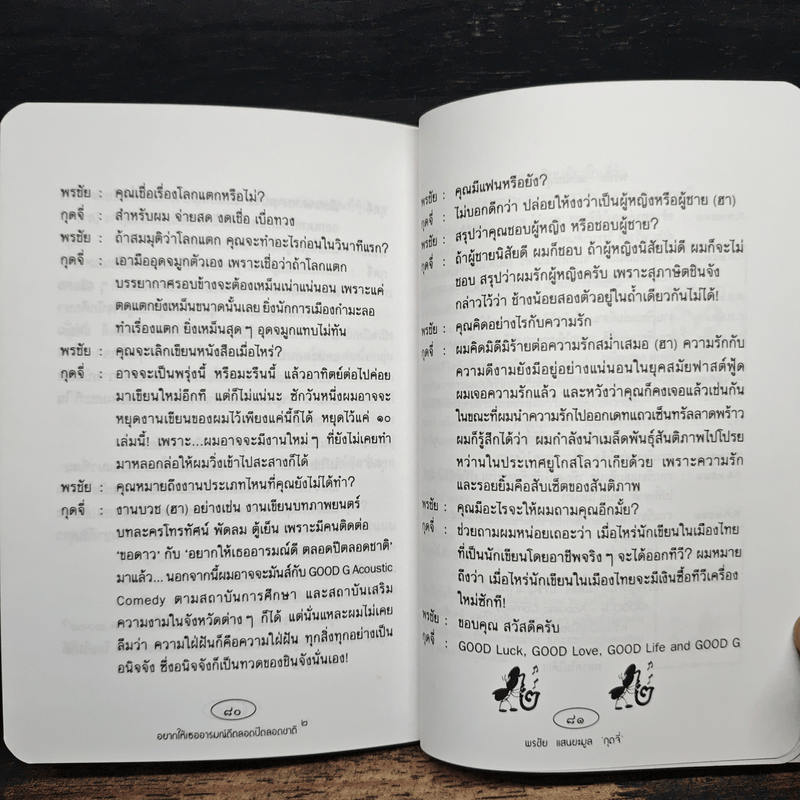 พรชัย : คุณเชื่อเรื่องโลกแตกหรือไม่?
กุดจี่ : สำหรับผม จ่ายสด งดเชื่อ เบื่อทวง
พรชัย : ถ้าสมมุติว่าโลกแตก คุณจะทำอะไรก่อนในวินาทีแรก?
กุดจี่ : เอามืออุดจมูกตัวเอง เพราะเชื่อว่าถ้าโลกแตก
บรรยากาศรอบข้างจะต้องเหม็นเน่าแน่นอน เพราะแค่
ตดแตกยังเหม็นขนาดนั้นเลย ยิ่งนักการเมืองกำมะลอ
ทำเรื่องแตก ยิ่งเหม็นสุด ๆ อุดจมูกแทบไม่ทัน
พรชัย : คุณจะเลิกเขียนหนังสือเมื่อไหร่?
กุดจี่ : อาจจะเป็นพรุ่งนี้ หรือมะรืนนี้ แล้วอาทิตย์ต่อไปค่อย
มาเขียนใหม่อีกที แต่ก็ไม่แน่นะ ซักวันหนึ่งผมอาจจะ
หยุดงานเขียนของผมไว้เพียงแค่นี้ก็ได้ หยุดไว้แค่ ๑๐
เล่มนี้! เพราะ...ผมอาจจะมีงานใหม่ ๆ ที่ยังไม่เคยทำ
มาหลอกล่อให้ผมวิ่งเข้าไปสะสางก็ได้
พรชัย : คุณหมายถึงงานประเภทไหนที่คุณยังไม่ได้ทำ?
กุดจี่ : งานบวช (ฮา) อย่างเช่น งานเขียนบทภาพยนตร์
บทละครโทรทัศน์ พัดลม ตู้เย็น เพราะมีคนติดต่อ
‘ขอดาว’ กับ ‘อยากให้เธออารมณ์ดี ตลอดปีตลอดชาติ’
มาแล้ว... นอกจากนี้ผมอาจจะมันส์กับ GOOD G Acoustic
Comedy ตามสถาบันการศึกษา และสถาบันเสริม
ความงามในจังหวัดต่าง ๆ ก็ได้ แต่นั่นแหละผมไม่เคย
ลืมว่า ความใฝ่ฝันก็คือความใฝ่ฝัน ทุกสิ่งทุกอย่างเป็น
อนิจจัง ซึ่งอนิจจังก็เป็นทวดของชินจังนั่นเอง!
๘๐
อยากให้เธออารมณ์ดีตลอดปีตลอดชาติ ๒
พรชัย : คุณมีแฟนหรือยัง?
กุดจี่ : ไม่บอกดีกว่า ปล่อยให้งงว่าเป็นผู้หญิงหรือผู้ชาย (ฮา)
พรชัย : สรุปว่าคุณชอบผู้หญิง หรือชอบผู้ชาย?
กุดจี่ : ถ้าผู้ชายนิสัยดี ผมก็ชอบ ถ้าผู้หญิงนิสัยไม่ดี ผมก็จะไม่
ชอบ สรุปว่าผมรักผู้หญิงครับ เพราะสุภาษิตชินจัง
กล่าวไว้ว่า ช้างน้อยสองตัวอยู่ในถ้ำเดียวกันไม่ได้!
พรชัย : คุณคิดอย่างไรกับความรัก
กุดจี่ : ผมคิดมิดีมิร้ายต่อความรักสม่ำเสมอ (ฮา) ความรักกับ
ความดีงามยังมีอยู่อย่างแน่นอนในยุคสมัยฟาสต์ฟู้ด
ผมเจอความรักแล้ว และหวังว่าคุณก็คงเจอแล้วเช่นกัน
ในขณะที่ผมนำความรักไปออกเดทแถวเซ็นทรัลลาดพร้าว
ผมก็รู้สึกได้ว่า ผมกำลังนำเมล็ดพันธุ์สันติภาพไปโปรย
หว่านในประเทศยูโกสโลวาเกียด้วย เพราะความรัก
และรอยยิ้มคือสับเซ็ตของสันติภาพ
พรชัย : คุณมีอะไรจะให้ผมถามคุณอีกมั้ย?
กุดจี่ : ช่วยถามผมหน่อยเถอะว่า เมื่อไหร่นักเขียนในเมืองไทย
ที่เป็นนักเขียนโดยอาชีพจริง ๆ จะได้ออกทีวี? ผมหมาย
ถึงว่า เมื่อไหร่นักเขียนในเมืองไทยจะมีเงินซื้อทีวีเครื่อง
ใหม่ซักที!
พรชัย : ขอบคุณ สวัสดีครับ
กุดจี่ : GOOD Luck, GOOD Love, GOOD Life and GOOD G
๘๑
พรชัย แสนยะมูล ‘กุดจี่’